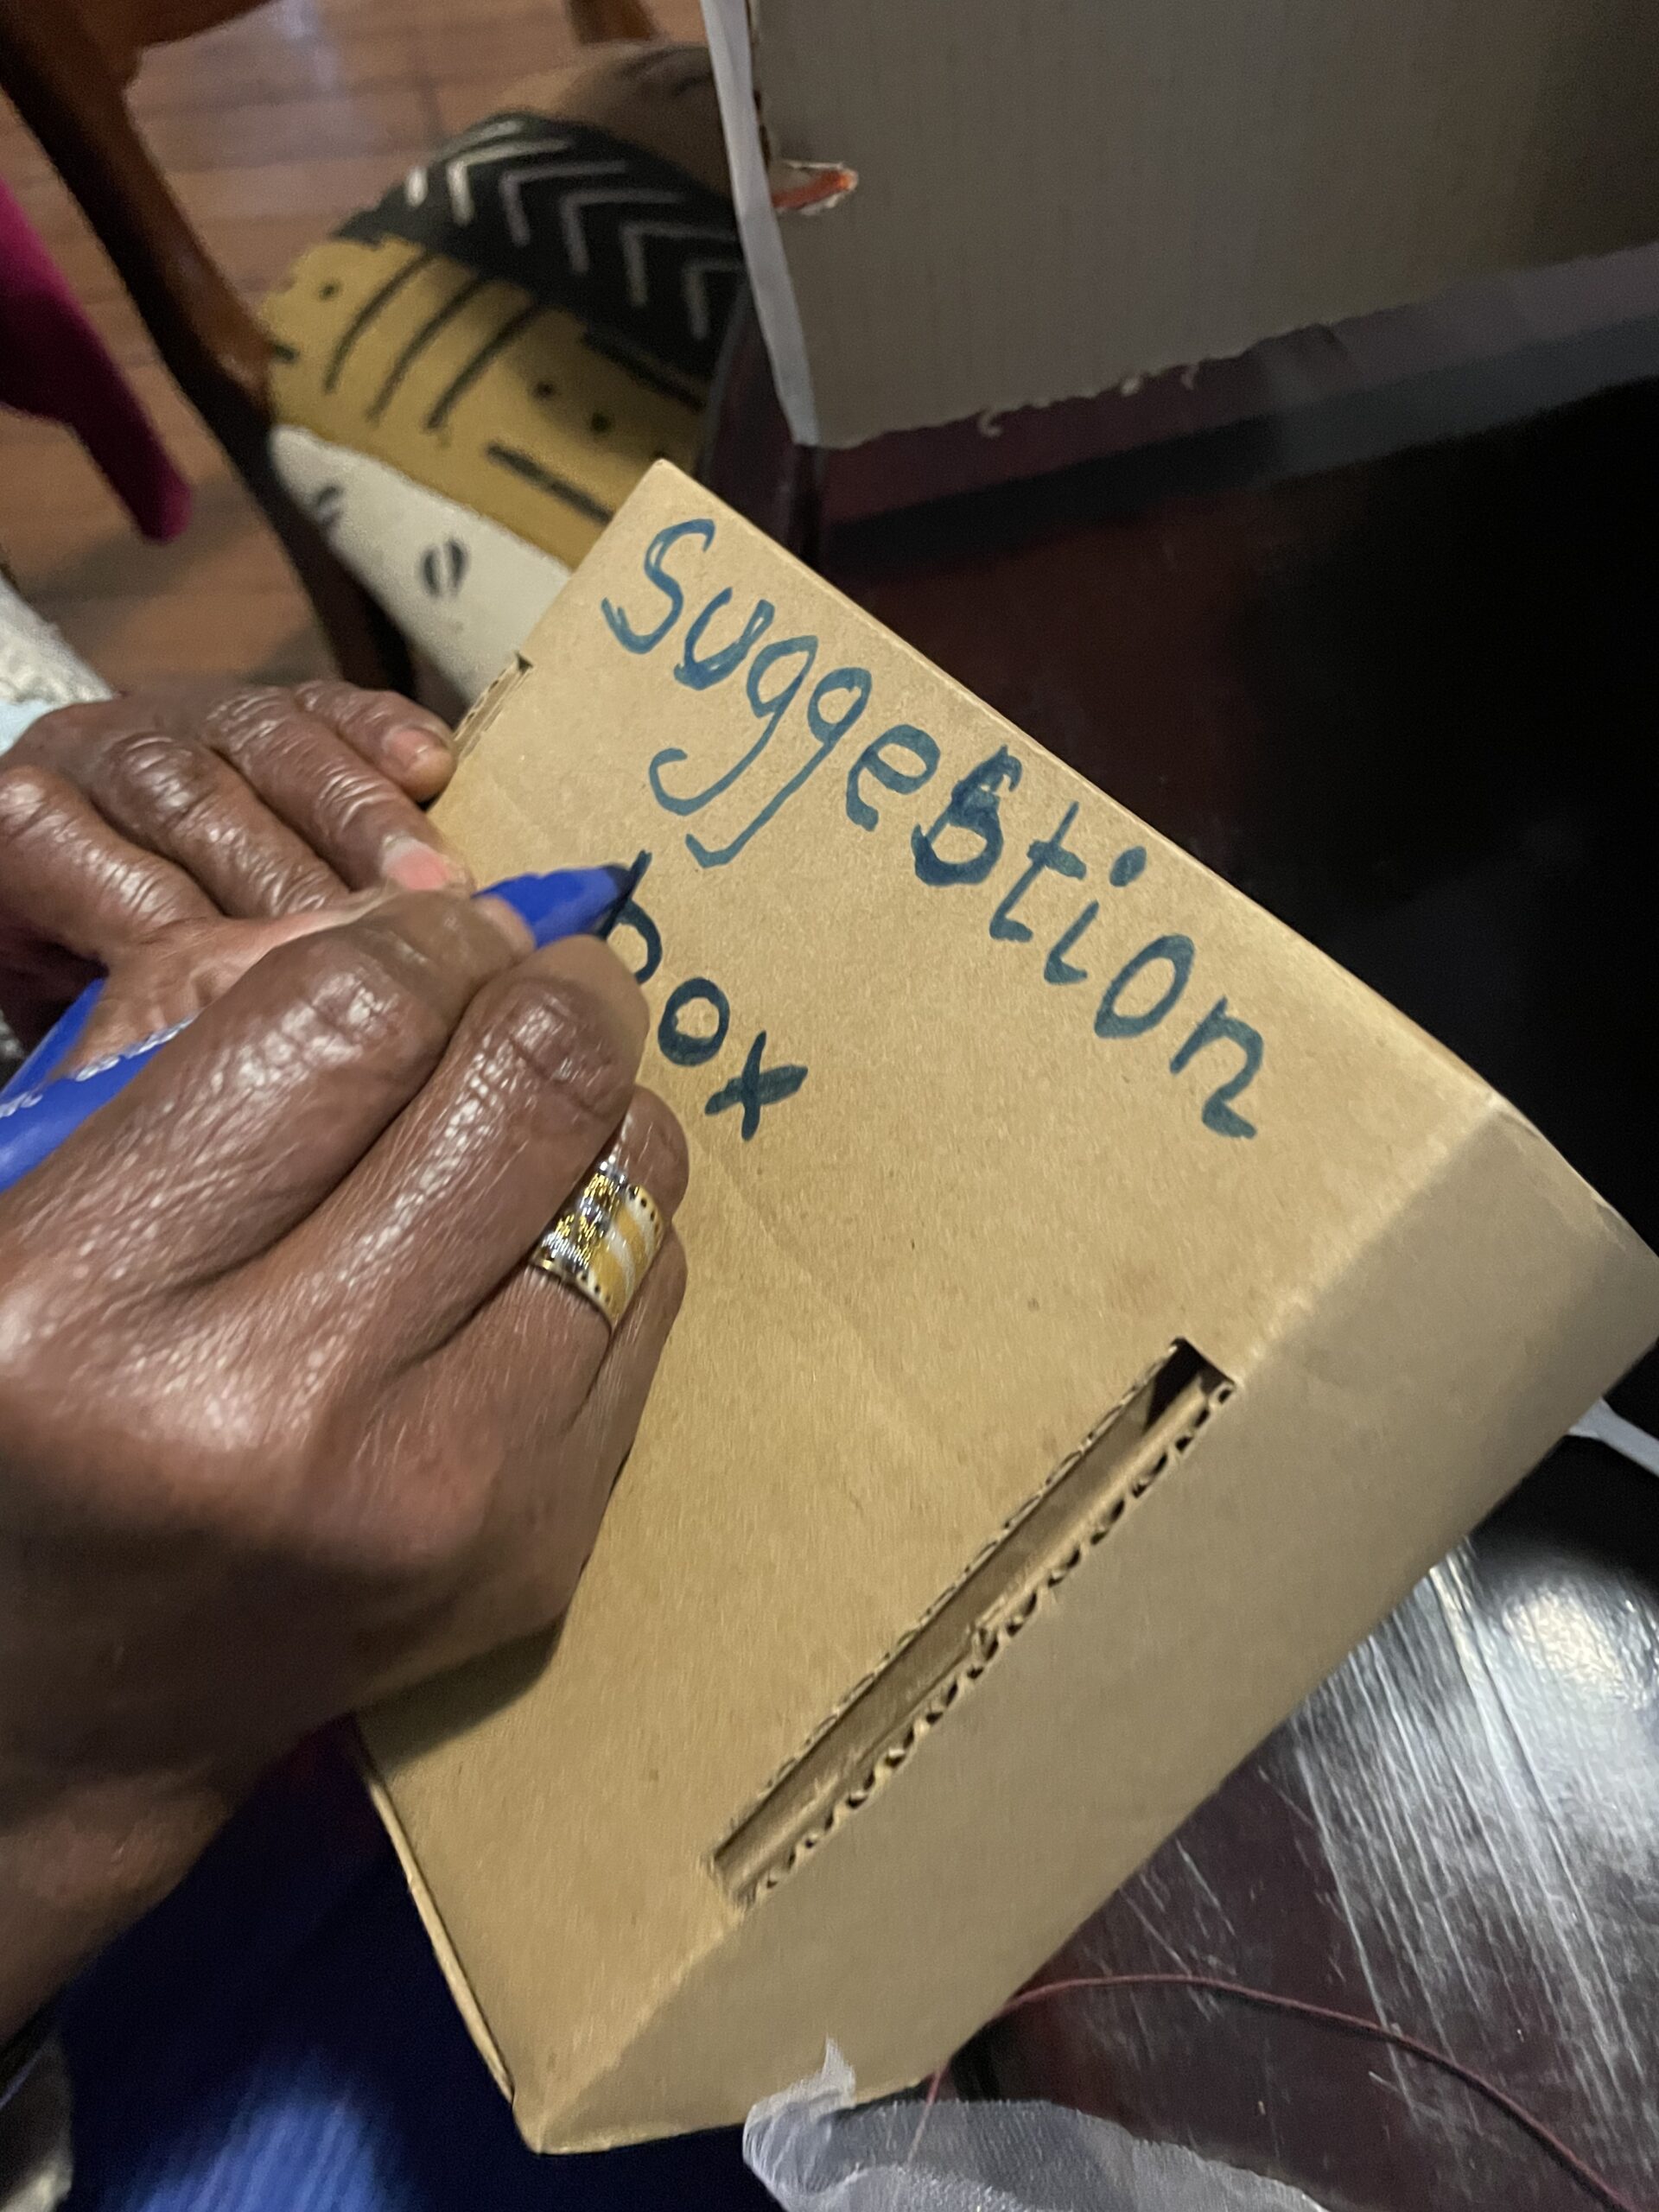 Suggestion
box